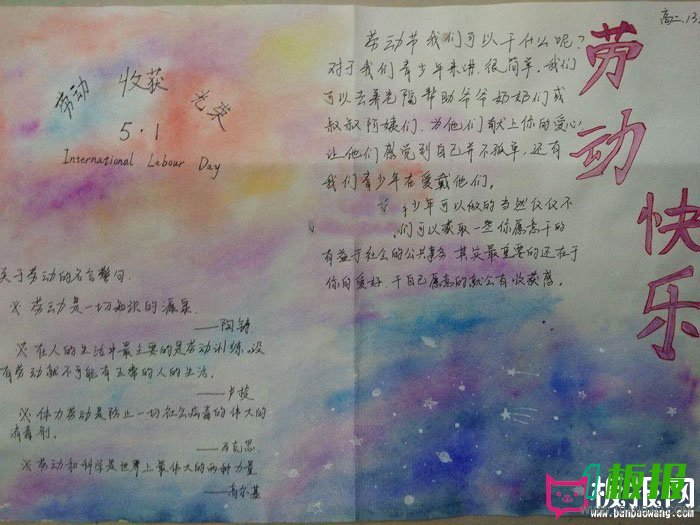 劳动 收获 光荣
5·1
International Labour Day
关于劳动的名言警句.
※ 劳动是一切知识的源泉
——陶铸
※ 在人的生活中最主要的是劳动训练,没
有劳动就不可能有正常的人的生活。
——卢梭
※ 体力劳动是防止一切社会病毒的伟大的
消毒剂。
——马克思
※ 劳动和科学是世界上最伟大的两种力量
——高尔基
高二.13.
劳动快乐
劳动节我们可以干什么呢?
对于我们青少年来讲,很简单,我们
可以去养老院帮助爷爷奶奶们或
叔叔阿姨们,为他们献上你的爱心
让他们感觉到自己并不孤单,还有
我们青少年在爱戴他们。
少年可以做的当然仅仅不
们可以获取一些你愿意干的
有益于社会的公共事务,其实最重要的还在于
你的爱好,干自己愿意的就会有收获意。
板报
板报网
www.banbaowang.com